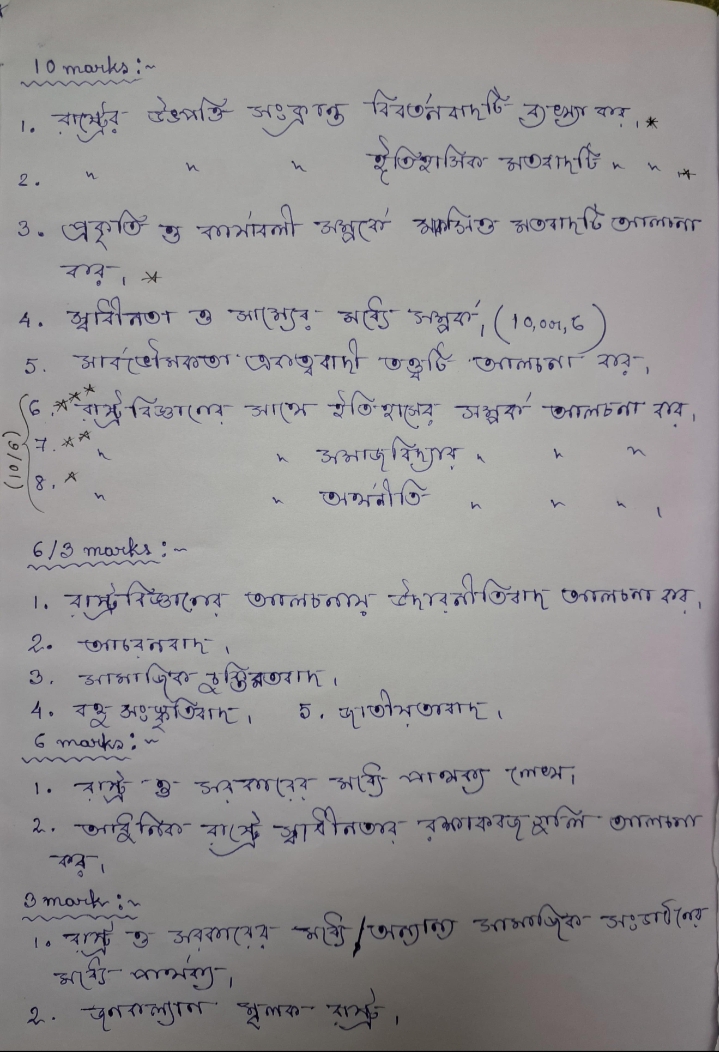 10 marks :~
1. রাষ্ট্রের উৎপত্তি সংক্রান্ত বিবর্তনবাদটি ব্যখ্যা কর। *
2. " " " ঐতিহাসিক মতবাদটি " " । *
3. প্রকৃতি ও কার্যাবলী সম্পর্কে মার্কসীও মতবাদটি আলচনা
কর। *
4. স্বাধীনতা ও সাম্যের মধ্যে সম্পর্ক। (10, or, 6)
5. সার্বভৌমকতা একত্ববাদী তত্ত্বটি আলচনা কর।
6. *** রাষ্ট্রবিজ্ঞানের সাথে ইতিহাসের সম্পর্ক আলচনা কর।
7. ** " " সমাজবিদ্যার " " "
(10/6)
8. * " " অর্থনীতি " " " ।
6/3 marks :~
1. রাষ্ট্রবিজ্ঞানের আলচনায় উদারনীতিবাদ আলচনা কর।
2. আচরনবাদ।
3. সামাজিক চুক্তিমতবাদ।
4. বহু সংস্কৃতিবাদ। 5. জাতীয়তাবাদ।
6 marks :~
1. রাষ্ট্র ও সরকারের মধ্যে পার্থক্য লেখ।
2. আধুনিক রাষ্ট্রে স্বাধীনতার রক্ষাকবজগুলি আলচনা
কর।
3 mark :~
1. রাষ্ট্র ও সরকারের মধ্যে / অন্যান্য সামাজিক সংগঠনের
মধ্যে পার্থক্য।
2. জনকল্যান মূলক রাষ্ট্র।